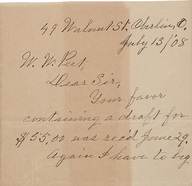 49 Walnut St. Oberlin, O.
July 13/'08
W. W. Peet
Dear Sir,
Your favor
containing a draft for
$55,00 was rec'd June 29.
Again I have to beg